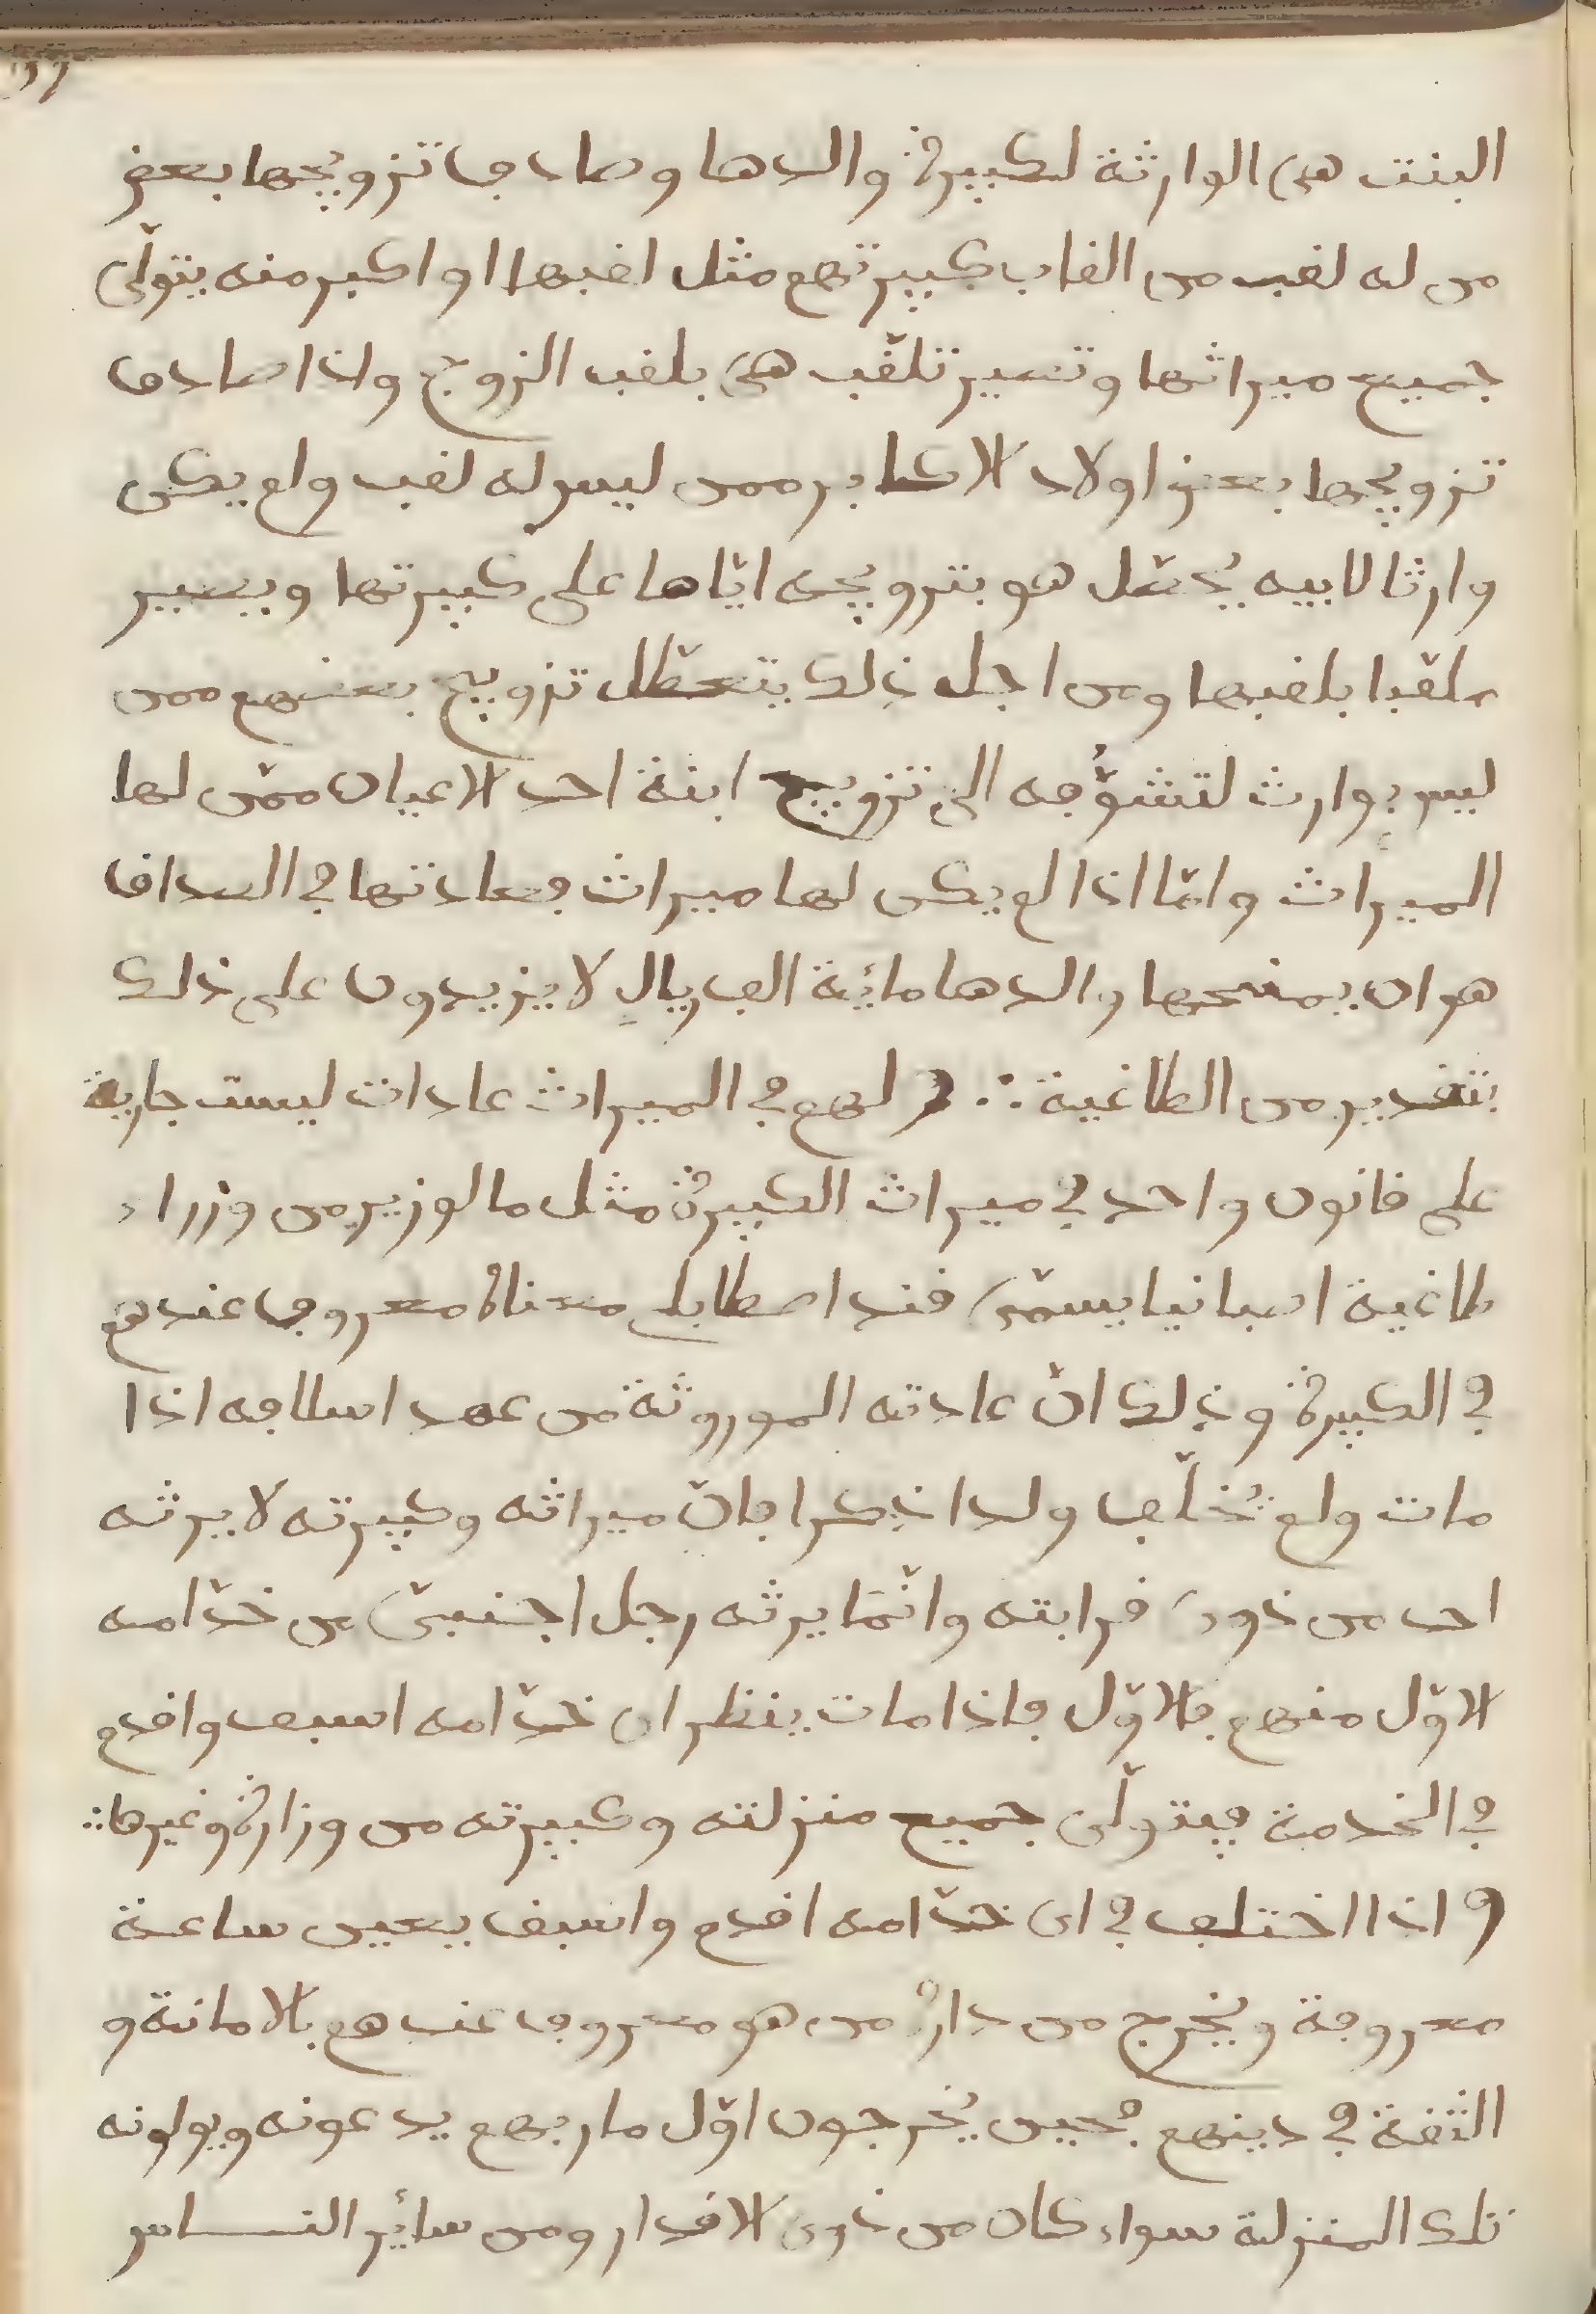 البنت هى الوارثة لكبيرة والدها وصادف تزويجها بعض
من له لقب من القاب كبيرتهم مثل لقبها او اكبر منه يتولّى
جميع ميراثها وتصير تلقّب هى بلقب الزوج واذا صادف
تزويجها بعض اولاد الاكابر ممن ليس له لقب ولم يكن
وارثا لابيه يحصّل هو بتزويجه ايّاها على كبيرتها ويصير
ملقّبا بلقبها ومن اجل ذلك يتعطّل تزويج بعضهم ممن
ليس بوارث لتشوّفه الى تزويج ابنة احد الاعيان ممّن لها
الميراث وامّا اذا لم يكن لها ميراث فعادتها في الصداق
هو ان يمنحها والدها مائة الف ريال لا يزيدون على ذلك
بتقدير من الطاغية ∴ ولهم في الميراث عادات ليست جارية
على قانون واحد في ميراث الكبيرة مثل ما لوزير من وزراء
طاغية اصبانيا يسمّى قند اصطابلي معناه معروف عندهم
في الكبيرة وذلك انّ عادته الموروثة من عهد اسلافه اذا
مات ولم يُخلّف ولدا ذكرا فانّ ميراثه وكبيرته لا يرثه
احد من ذوى قرابته وانّما يرثه رجل اجنبىّ من خدّامه
الاوّل منهم فالاوّل فاذا مات ينظر اى خدّامه اسبق واقدم
في الخدمة فيتولّى جميع منزلته وكبيرته من وزارة وغيرها ∴
و اذا اختلف في اى خدّامه اقدم واسبق يعين ساعة
معروفة ويخرج من داره من هو معروف عندهم بالامانة و
الثقة في دينهم فحين يُخرجون اوّل مار بهم يدعونه ويولونه
تلك المنزلة سواء كان من ذوى الاقدار ومن سائر النـــاس